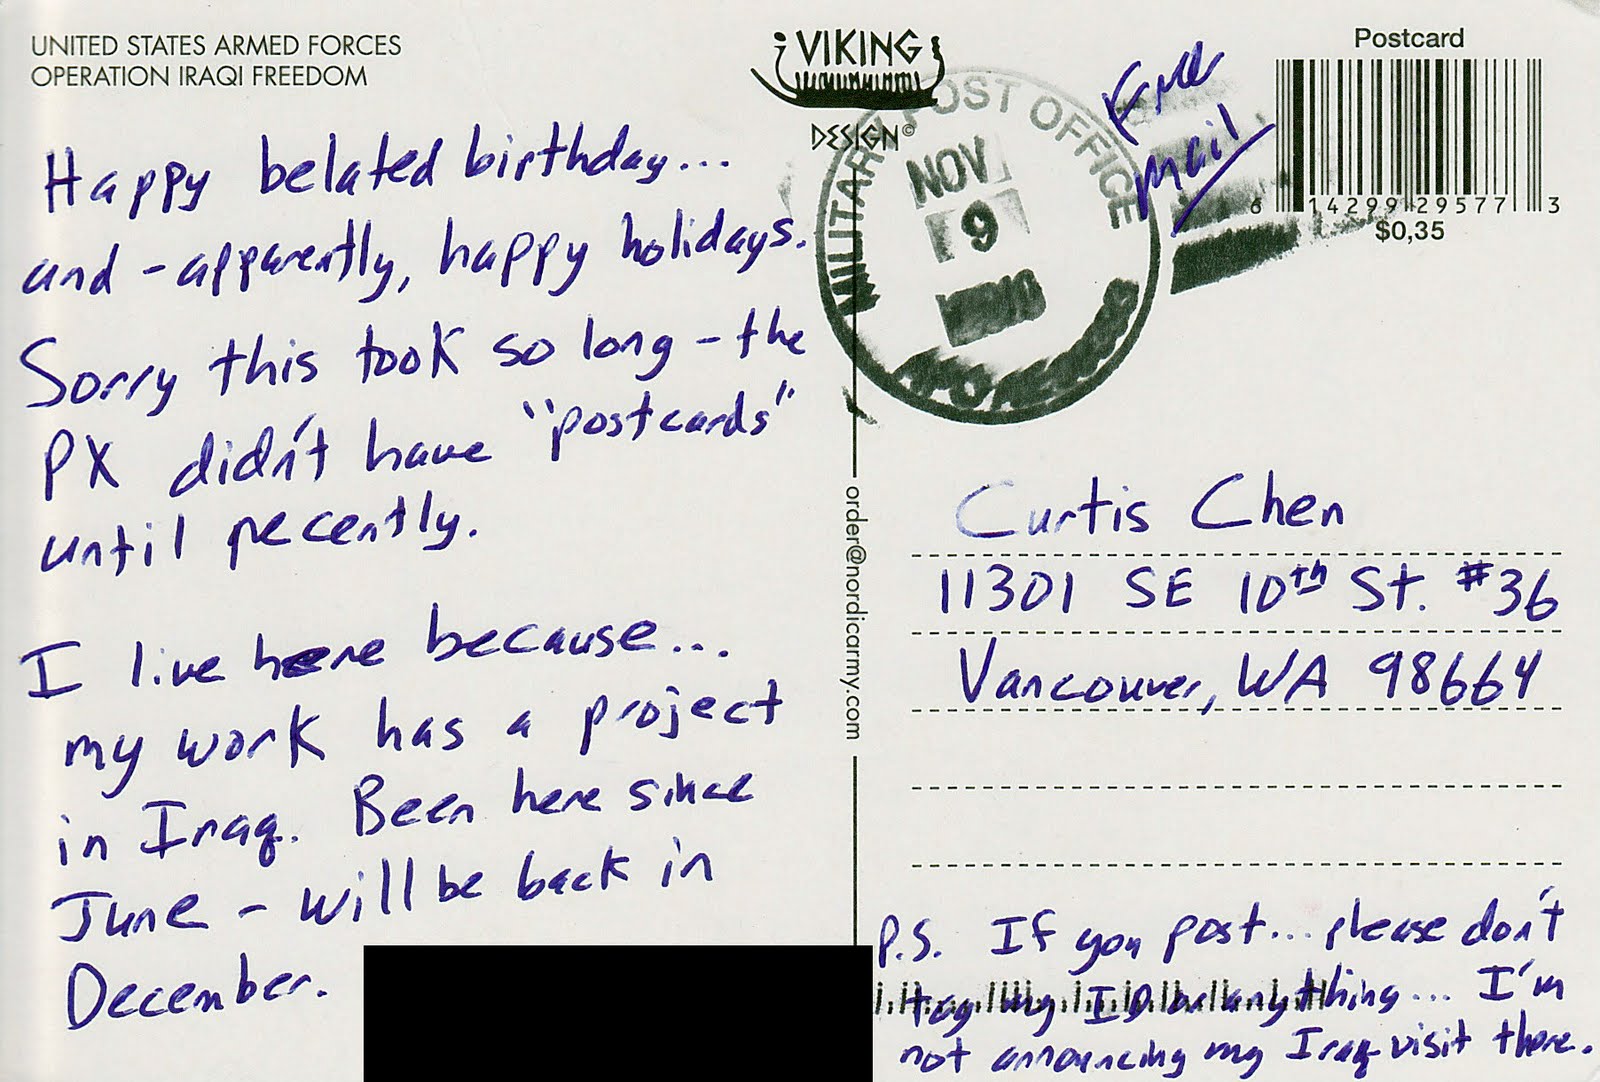 UNITED STATES ARMED FORCES
OPERATION IRAQI FREEDOM
Happy belated birthday...
and - apparently, happy holidays.
Sorry this took so long - the
PX didn't have "postcards"
until recently.
I live here because...
my work has a project
in Iraq. Been here since
June - will be back in
December.
VIKING
DESIGN©
MILITARY POST OFFICE
NOV
9
Free
Mail
Postcard
6 14299 29577 3
$0,35
order@nordicarmy.com
Curtis Chen
11301 SE 10th St. #36
Vancouver, WA 98664
P.S. If you post... please don't
tag my ID or anything... I'm
not announcing my Iraq visit there.